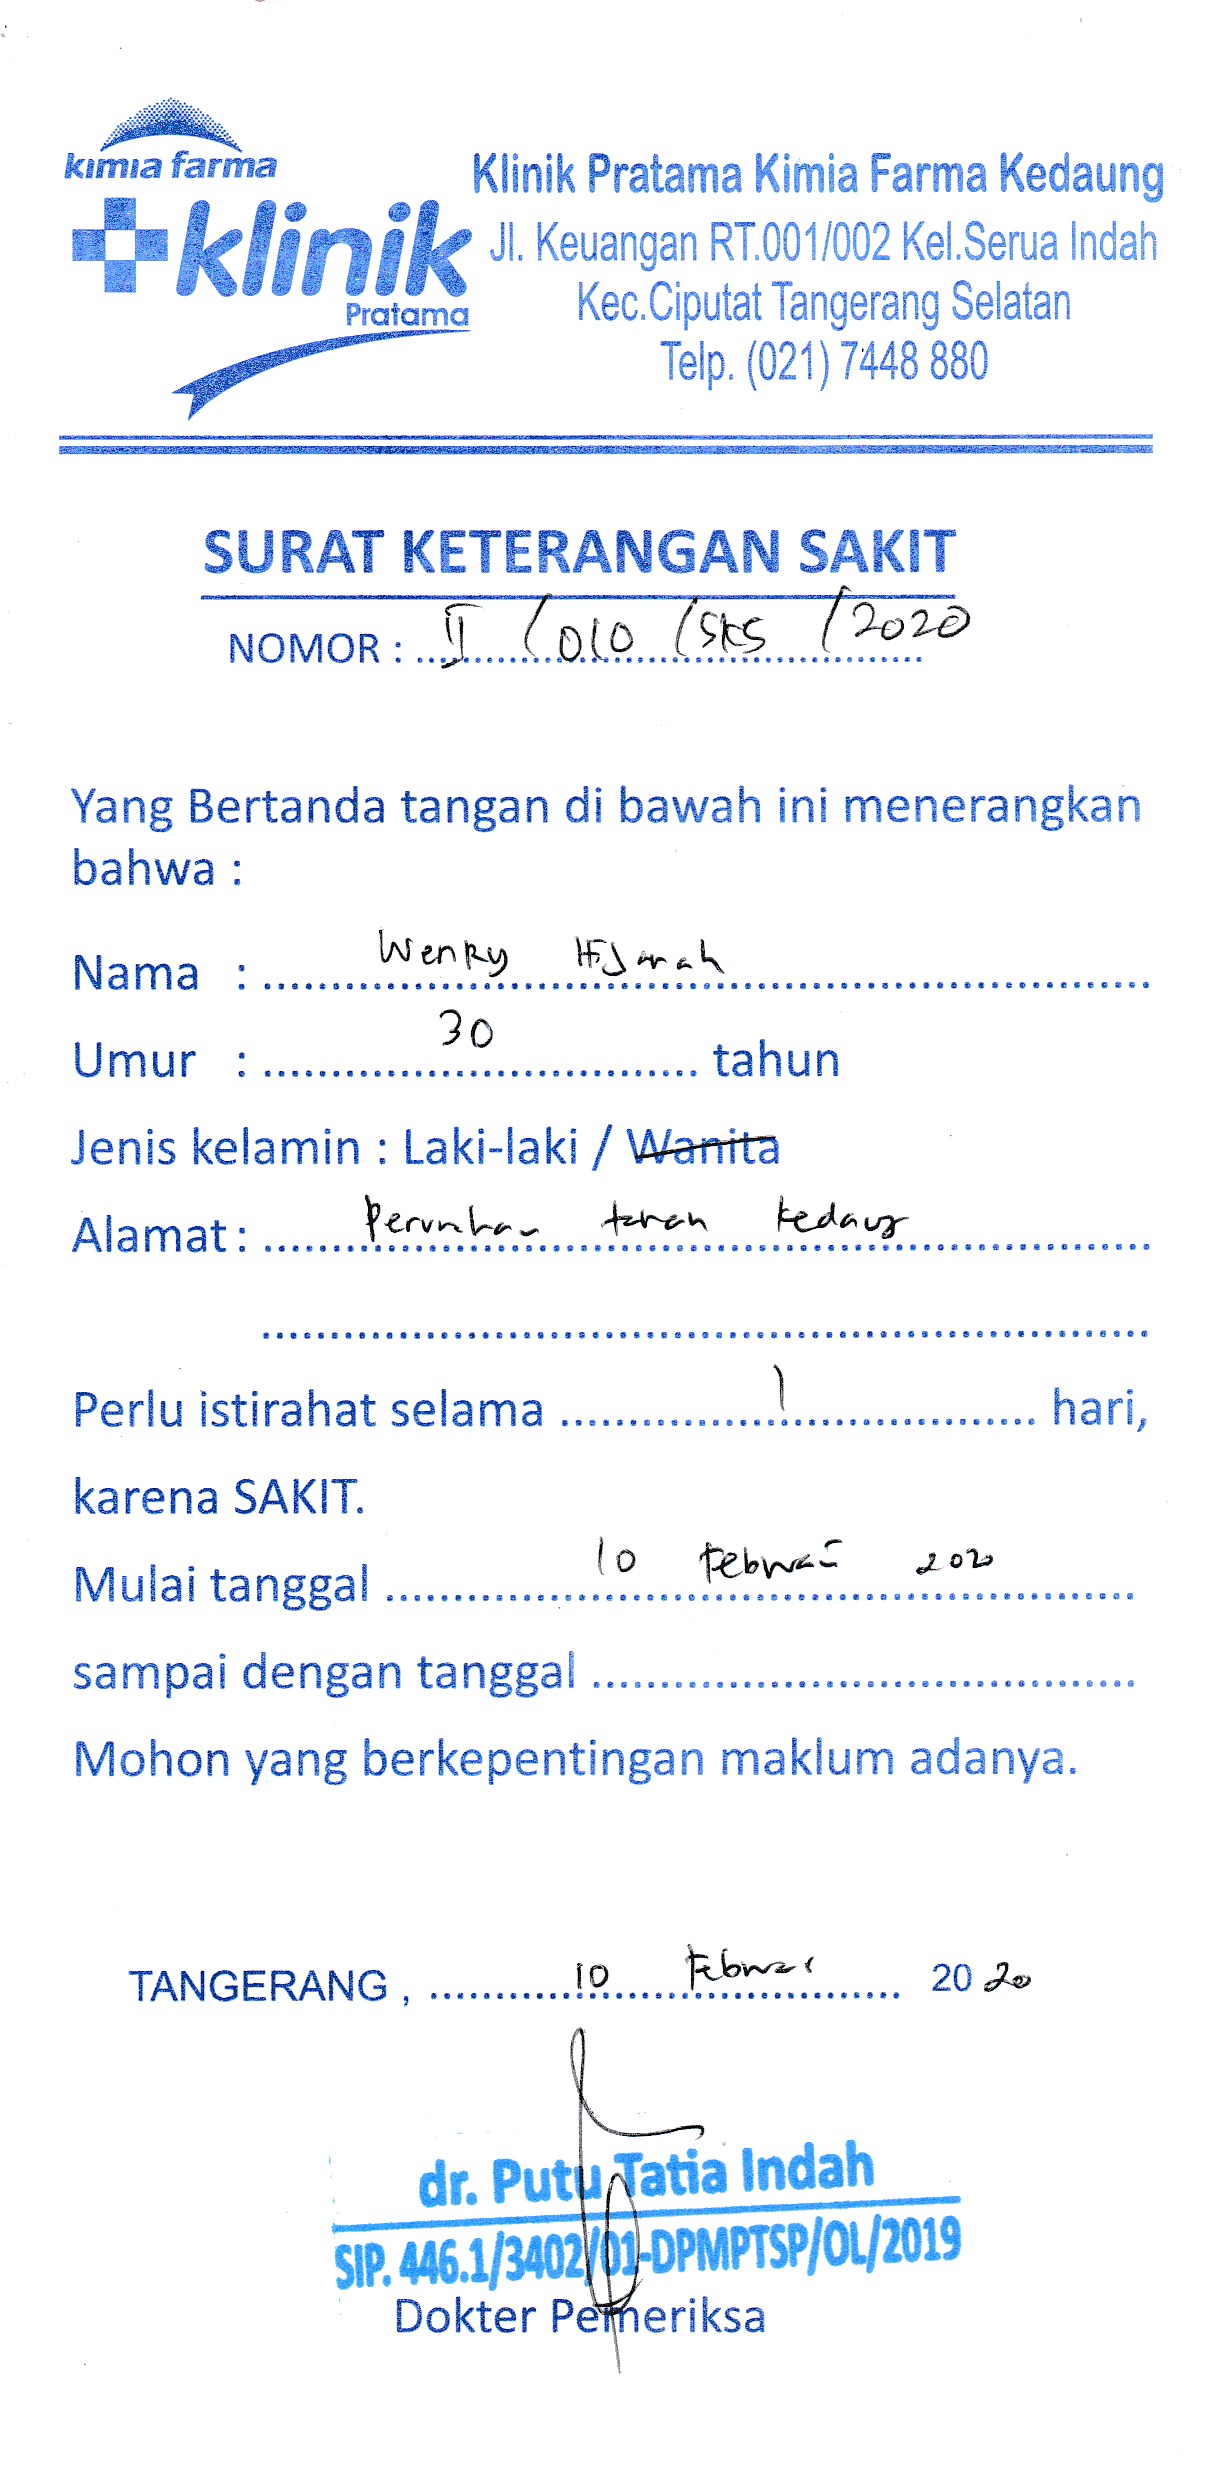 kimia farma
klinik
Pratama
Klinik Pratama Kimia Farma Kedaung
Jl. Keuangan RT.001/002 Kel.Serua Indah
Kec.Ciputat Tangerang Selatan
Telp. (021) 7448 880
SURAT KETERANGAN SAKIT
NOMOR : II / 010 / SKS / 2020
Yang Bertanda tangan di bawah ini menerangkan
bahwa :
Nama : Wenky
Umur : 30 tahun
Jenis kelamin : Laki-laki / Wanita
Alamat : Kedaung
Perlu istirahat selama 1 hari,
karena SAKIT.
Mulai tanggal 10 Februari 2020
sampai dengan tanggal
Mohon yang berkepentingan maklum adanya.
TANGERANG , 10 Februari 2020
dr. Putu Tatia Indah
SIP. 446.1/3402/01-DPMPTSP/OL/2019
Dokter Pemeriksa